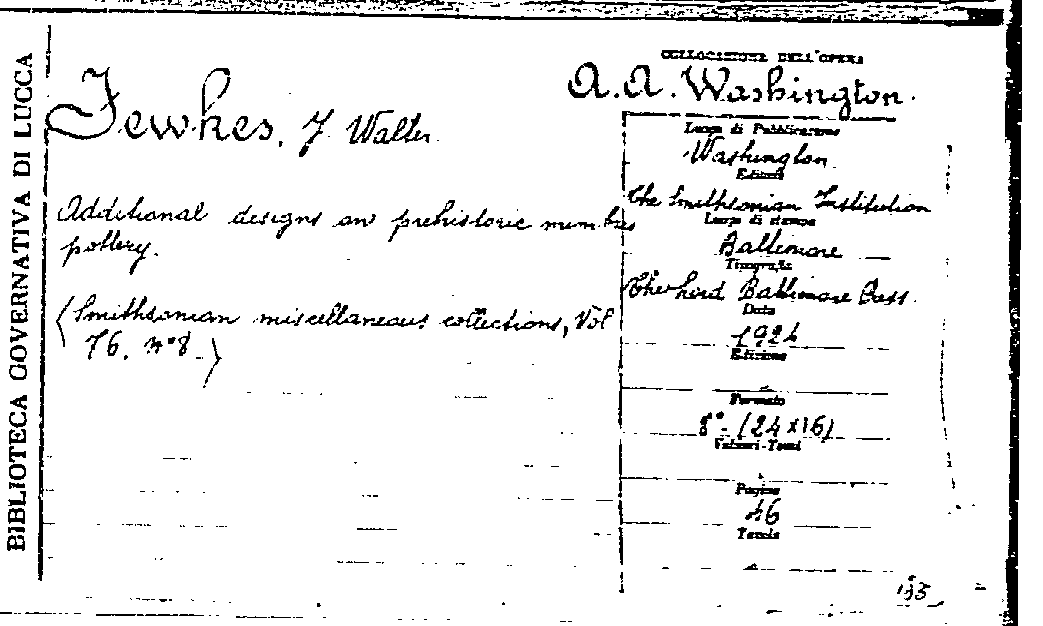 BIBLIOTECA GOVERNATIVA DI LUCCA
COLLOCAZIONE DELL'OPERA
A.A. Washington.
Fewkes, J. Walter.
Additional designs on prehistoric mimbres
pottery.
(Smithsonian miscellaneous collections, Vol
76, n°8.)
Luogo di Pubblicazione
Washington
Editore
The Smithsonian Institution
Luogo di stampa
Baltimore
Tipografia
The Lord Baltimore Press.
Data
1924
Edizione
Formato
8°- (24x16)
Volumi-Tomi
Pagine
46
Tavole